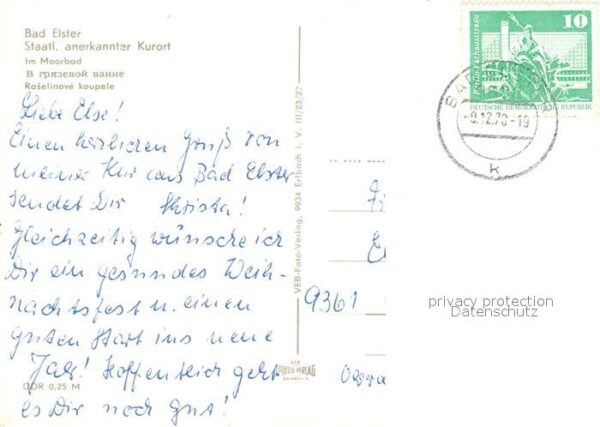 Bad Elster
Staatl. anerkannter Kurort
Im Moorbad
В грязевой ванне
Rašelinové koupele
Liebe Else!
Einen herzlichen Gruß von
meiner Kur aus Bad Elster
sendet Dir Christa!
Gleichzeitig wünsche ich
Dir ein gesundes Weih-
nachtsfest u. einen
guten Start ins neue
Jahr! Hoffentlich geht
es Dir noch gut!
DDR 0,25 M
VEB-Foto-Verlag, 9934 Erlbach i. V. III/23/27
10
DEUTSCHE DEMOKRATISCHE REPUBLIK
BAD
-19
k
9361
privacy protection
Datenschutz